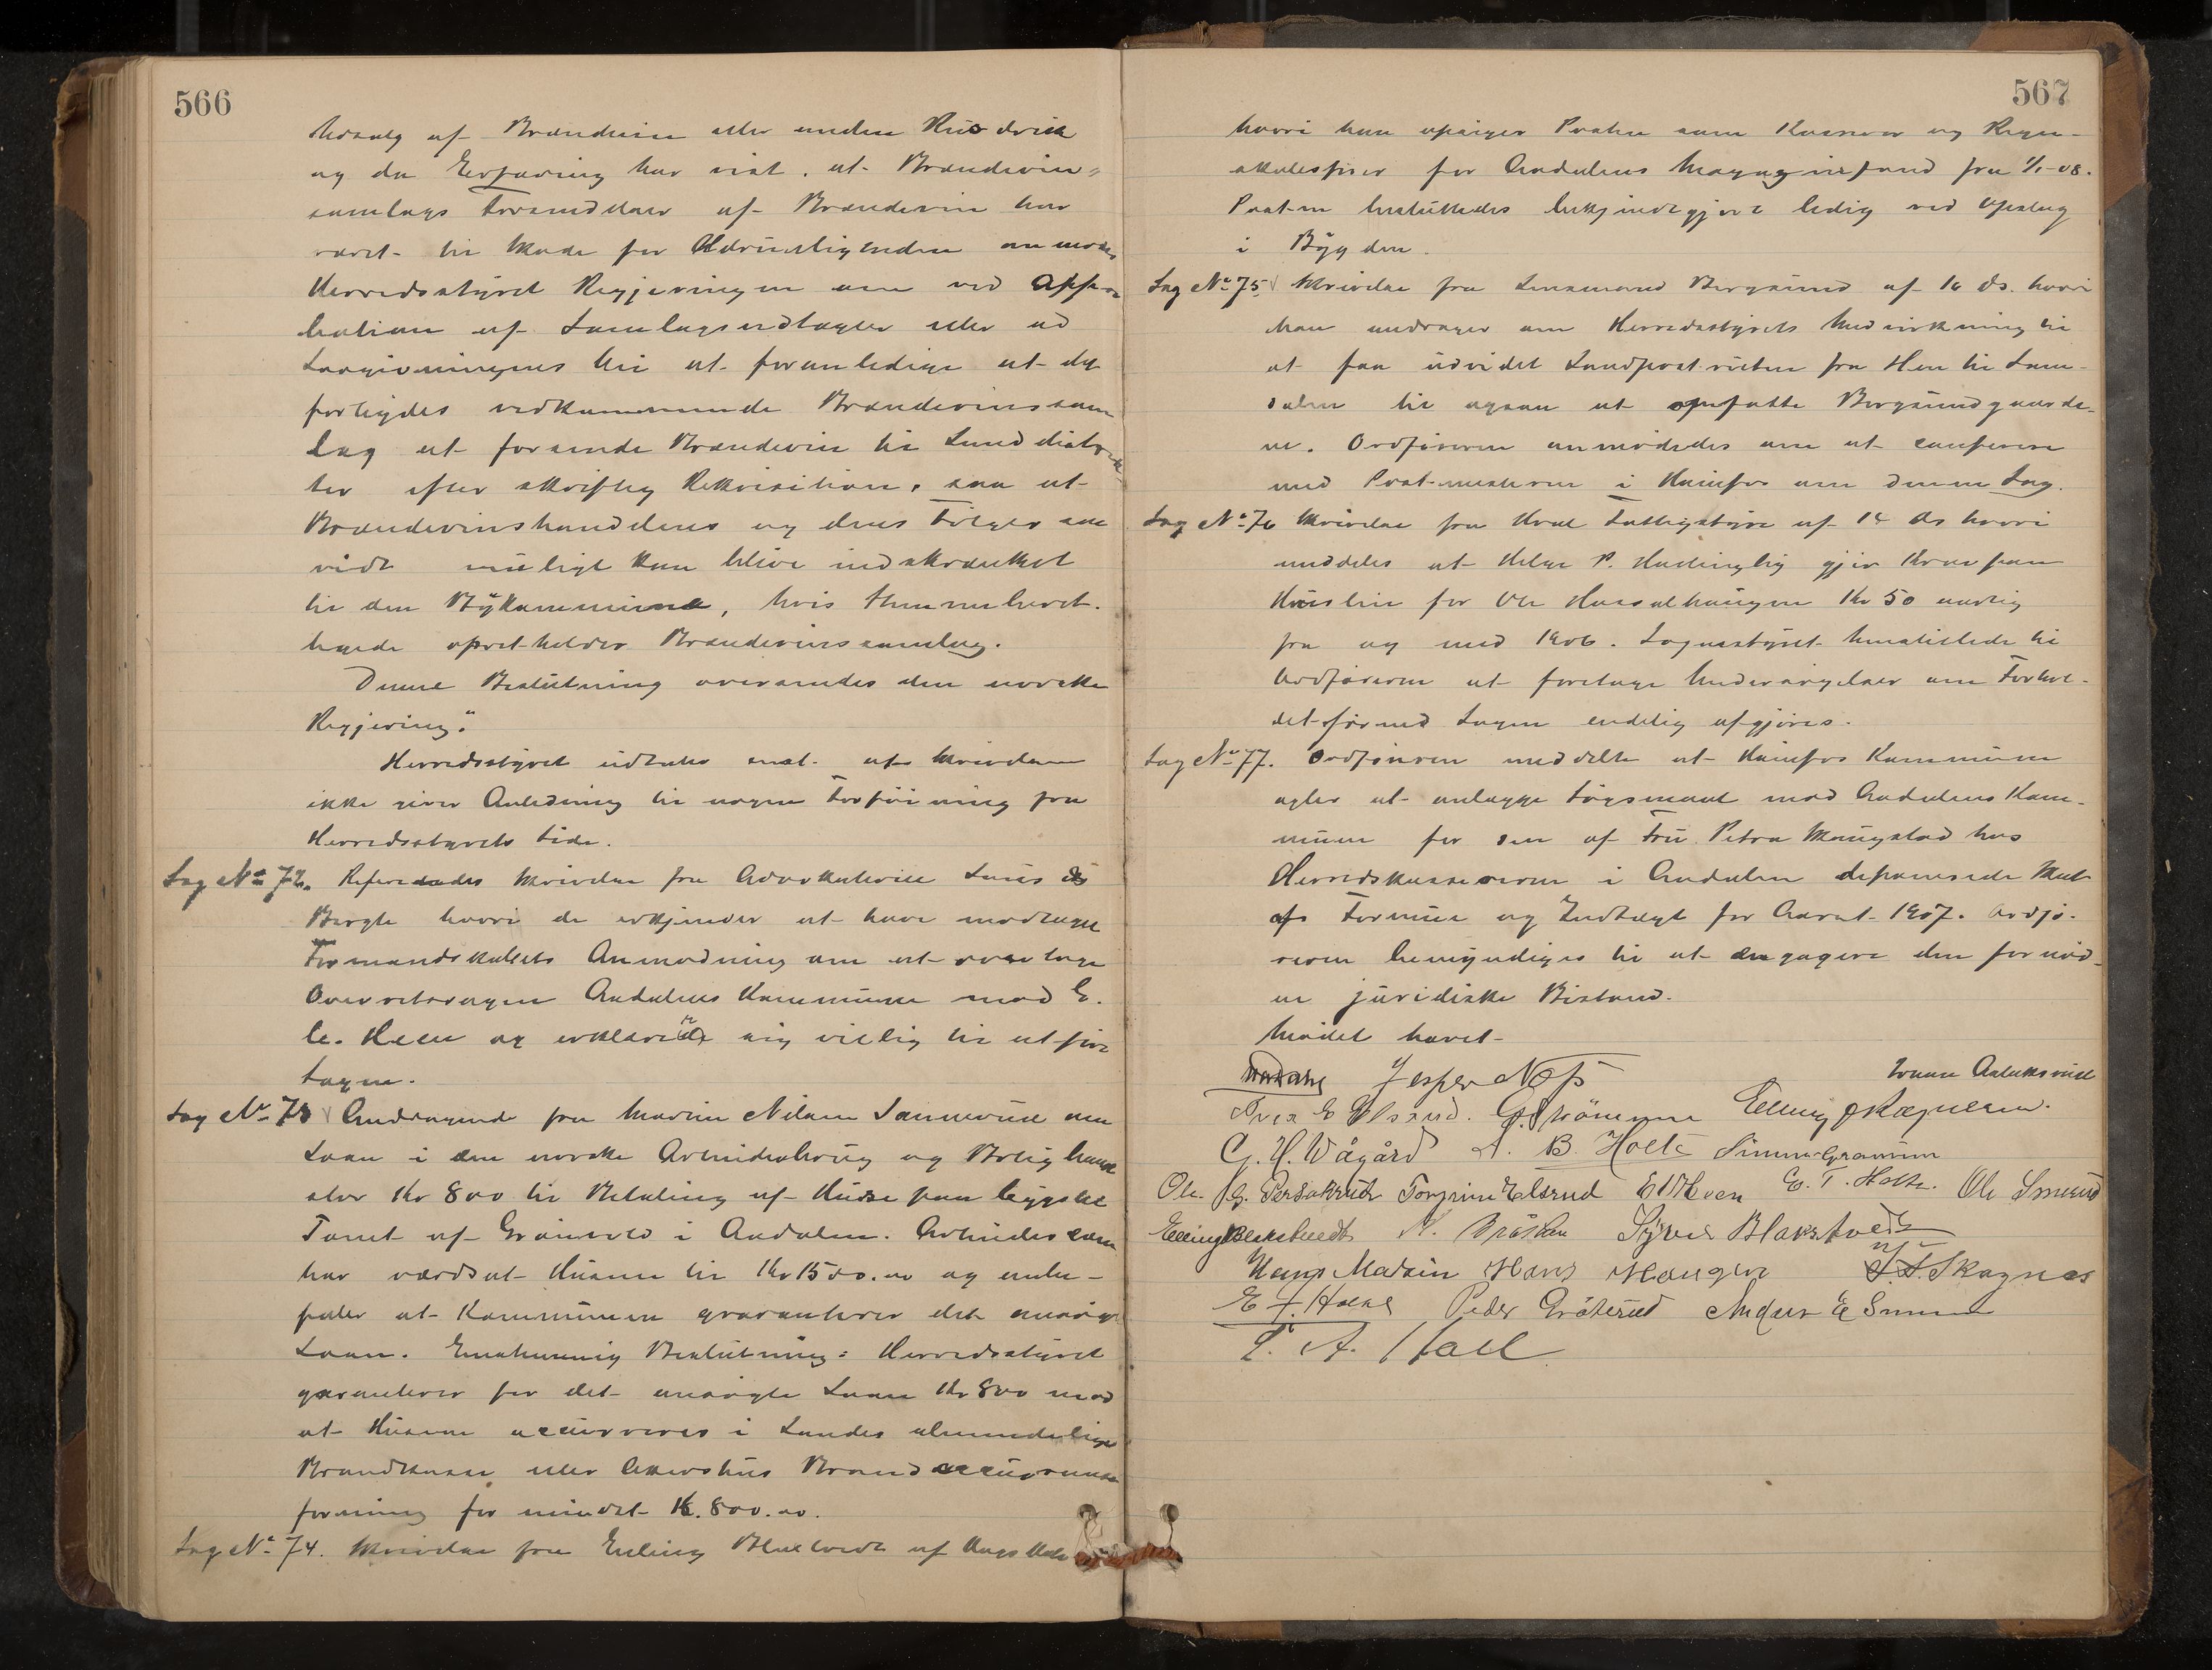 566
Udsalg af Brændevin eller anden Rusdrik
og da Erfaring har vist, at Brændevin-
samlags Forsendelser af Brændevin har
været til Skade for Ædrueligheden anmoder
Herredsstyret Regjeringen om ved Appro-
bation af Samlagsvedtægter eller ad
Lovgivningens Vei at foranledige at det
forbydes vedkommende Brændevinssam-
lag at forsende Brændevin til Landdistrik-
ter efter skriftlig Rekvisition, saa at
Brændevinshandelens og dens Følger saa
vidt muligt kan blive indskrænket
til den Bykommune, hvis Stemmeberet-
tigede opretholder Brændevinssamlag.
Denne Beslutning oversendes den norske
Regjering."
Herredsstyret udtalte enst. at Skrivelsen
ikke giver Anledning til nogen Forføining fra
Herredsstyrets Side.
Sag No 72. Refereredes Skrivelse fra Advokaterne Lous &
Bergh hvori de erkjender at have modtaget
Formandskabets Anmodning om at overtage
Overretssagen Aadalens Kommune mod E.
E. Heen og erklærer sig villig til at føre
Sagen.
Sag No 73 Andragende fra Martin Nilsen Sannerud om
Laan i den norske Arbeiderbrug og Boligbank
stor Kr 800 til Betaling af Huse paa bygslet
Tomt af Grønvold i Aadalen. Arbeiderkom
har værdsat Husene til Kr 1500.00 og anbe-
faler at Kommunen garanterer det ansøgte
Laan. Enstemmig Beslutning: Herredsstyret
garanterer for det ansøgte Laan Kr 800 mod
at Husene assureres i Landes almindelige
Brandkasse eller Akershus Brandassurance
forening for mindst Kr. 800.00.
Sag No 74. Skrivelse fra Elling Blakstvedt af
567
hvori han opsiger Posten som Kasserer og Regn-
skabsfører for Aadalens Magazinfond fra 1/1-08.
Posten besluttedes bekjendtgjort ledig ved Opslag
i Bygden.
Sag No 75 Skrivelse fra Lensmand Bergsund af 16 ds. hvori
han andrager om Herredsstyrets Medvirkning til
at faa udvidet Landpostruten fra Hen til Som-
dalen til ogsaa at omfatte Bergsundgaarde-
ne. Ordføreren anmodedes om at conferere
med Postmesteren i Hønefos om denne Sag.
Sag No 76 Skrivelse fra Hole Fattigstyre af 14 ds hvori
meddeles at Helge P. gjør Krav paa
Husleie for Ole Kr 50 aarlig
fra og med 1906. Sognestyret henstillede til
Ordføreren at foretage Undersøgelser om Forhol-
det førend Sagen endelig afgjøres.
Sag No 77. Ordføreren meddelte at Hønefos Kommune
agter at anlægge Søgsmaal mod Aadalens Kom-
mune for den af Fru Petra Skaugstad hos
Herredskassereren i Aadalen deponerede Skat
af Formue og Indtægt for Aaret 1907. Ordfø-
reren bemyndiges til at engagere den fornød-
ne juridiske Bistand.
Mødet hævet
Jesper Næs
Iver E Elsrud. G. Strømmen Elling J Ragnersen.
G. H. Wågård A. B. Holte Simen Gramum
Ole G. Persakrud Torgrim Elsrud E E Heen E. T. Holte. Ole Smeud
Elling Blakstvedt N. Bråthen Syver Blakstvedt
Hans Madsin Hans Haugen J. A. Skagnæs
E J. Holte Peder Grøterud Anders E Smeud
E. A. Hall